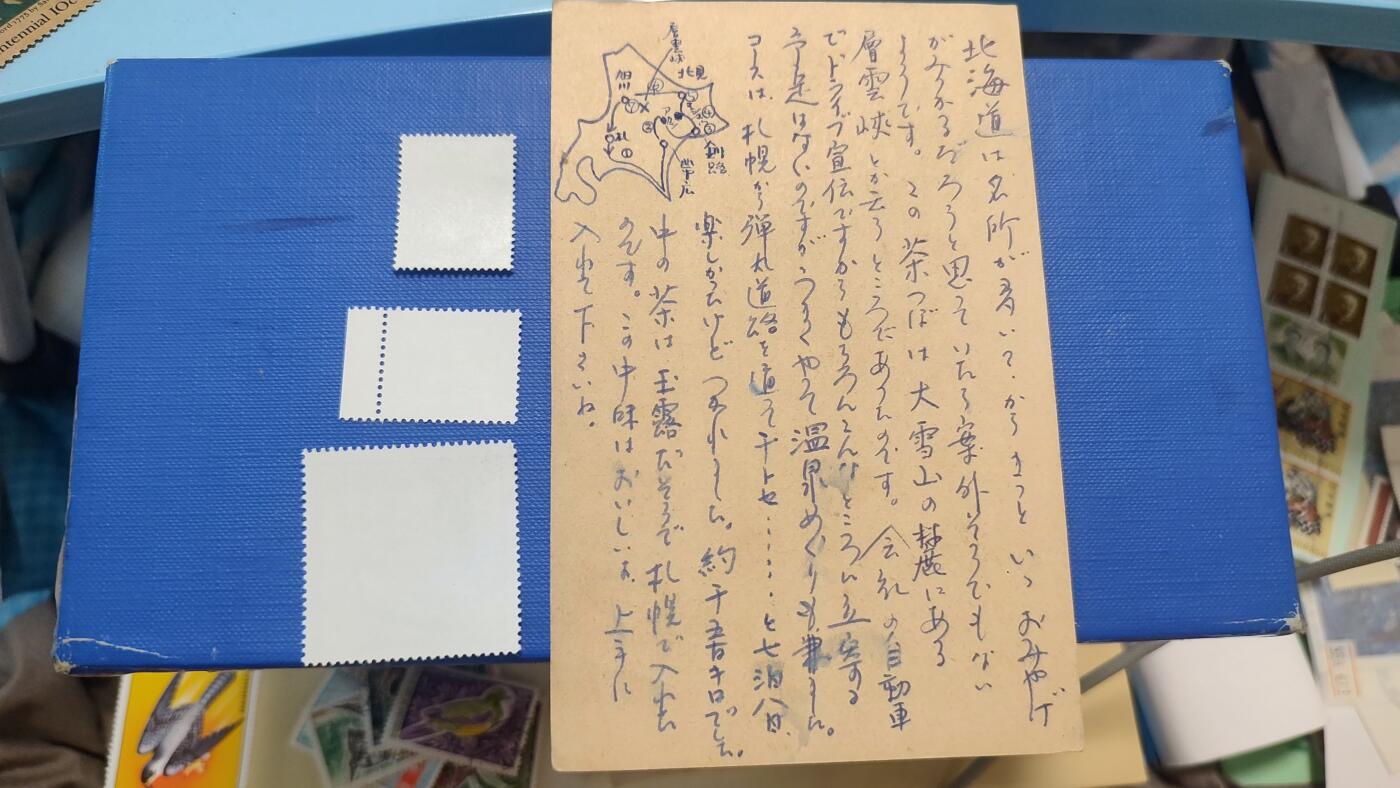 北海道は名所が多いので、からきっといゝおみやげ
がみつかるだろうと思っていたら案外そうでもない
ようです。この茶つぼは大雪山の麓にある
層雲峡とか云うところであったのです。会社の自動車
でドライブ宣伝ですからもちろんこんなところに立寄る
予定はないのですがうまくやって温泉めぐりも兼ました。
コースは、札幌から弾丸道路を通って千トセ・・・・・と七泊八日、
楽しかったけどつかれました。約千五百キロでした。
中の茶は玉露だそうで札幌で入れた
のです。この中味はおいしいよ、上手に
入れて下さいね。
層雲峡
北見
旭川
札
①
釧路
帯広
centennial 10c